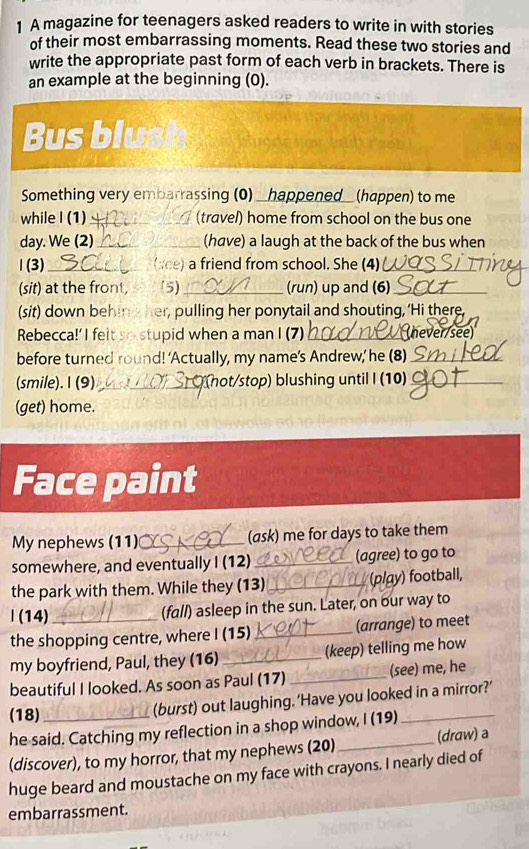 1 A magazine for teenagers asked readers to write in with stories
of their most embarrassing moments. Read these two stories and
write the appropriate past form of each verb in brackets. There is
an example at the beginning (0).
Bus blush
Something very embarrassing (0) happened (happen) to me
while I (1) (travel) home from school on the bus one
day. We (2) (have) a laugh at the back of the bus when
I (3) (see) a friend from school. She (4) was sitting
(sit) at the front, so I (5) ran (run) up and (6) Sat
(sit) down behind her, pulling her ponytail and shouting, 'Hi there,
Rebecca!' I felt so stupid when a man I (7) had never seen (never/see)
before turned round! 'Actually, my name's Andrew,' he (8) Smiled
(smile). I (9) (not/stop) blushing until I (10) got
(get) home.
Face paint
My nephews (11) asked (ask) me for days to take them
somewhere, and eventually I (12) agreed (agree) to go to
the park with them. While they (13) (play) football,
I (14) fell (fall) asleep in the sun. Later, on our way to
the shopping centre, where I (15) kept (arrange) to meet
my boyfriend, Paul, they (16) (keep) telling me how
beautiful I looked. As soon as Paul (17) (see) me, he
(18) (burst) out laughing. 'Have you looked in a mirror?'
he said. Catching my reflection in a shop window, I (19)
(discover), to my horror, that my nephews (20) (draw) a
huge beard and moustache on my face with crayons. I nearly died of
embarrassment.